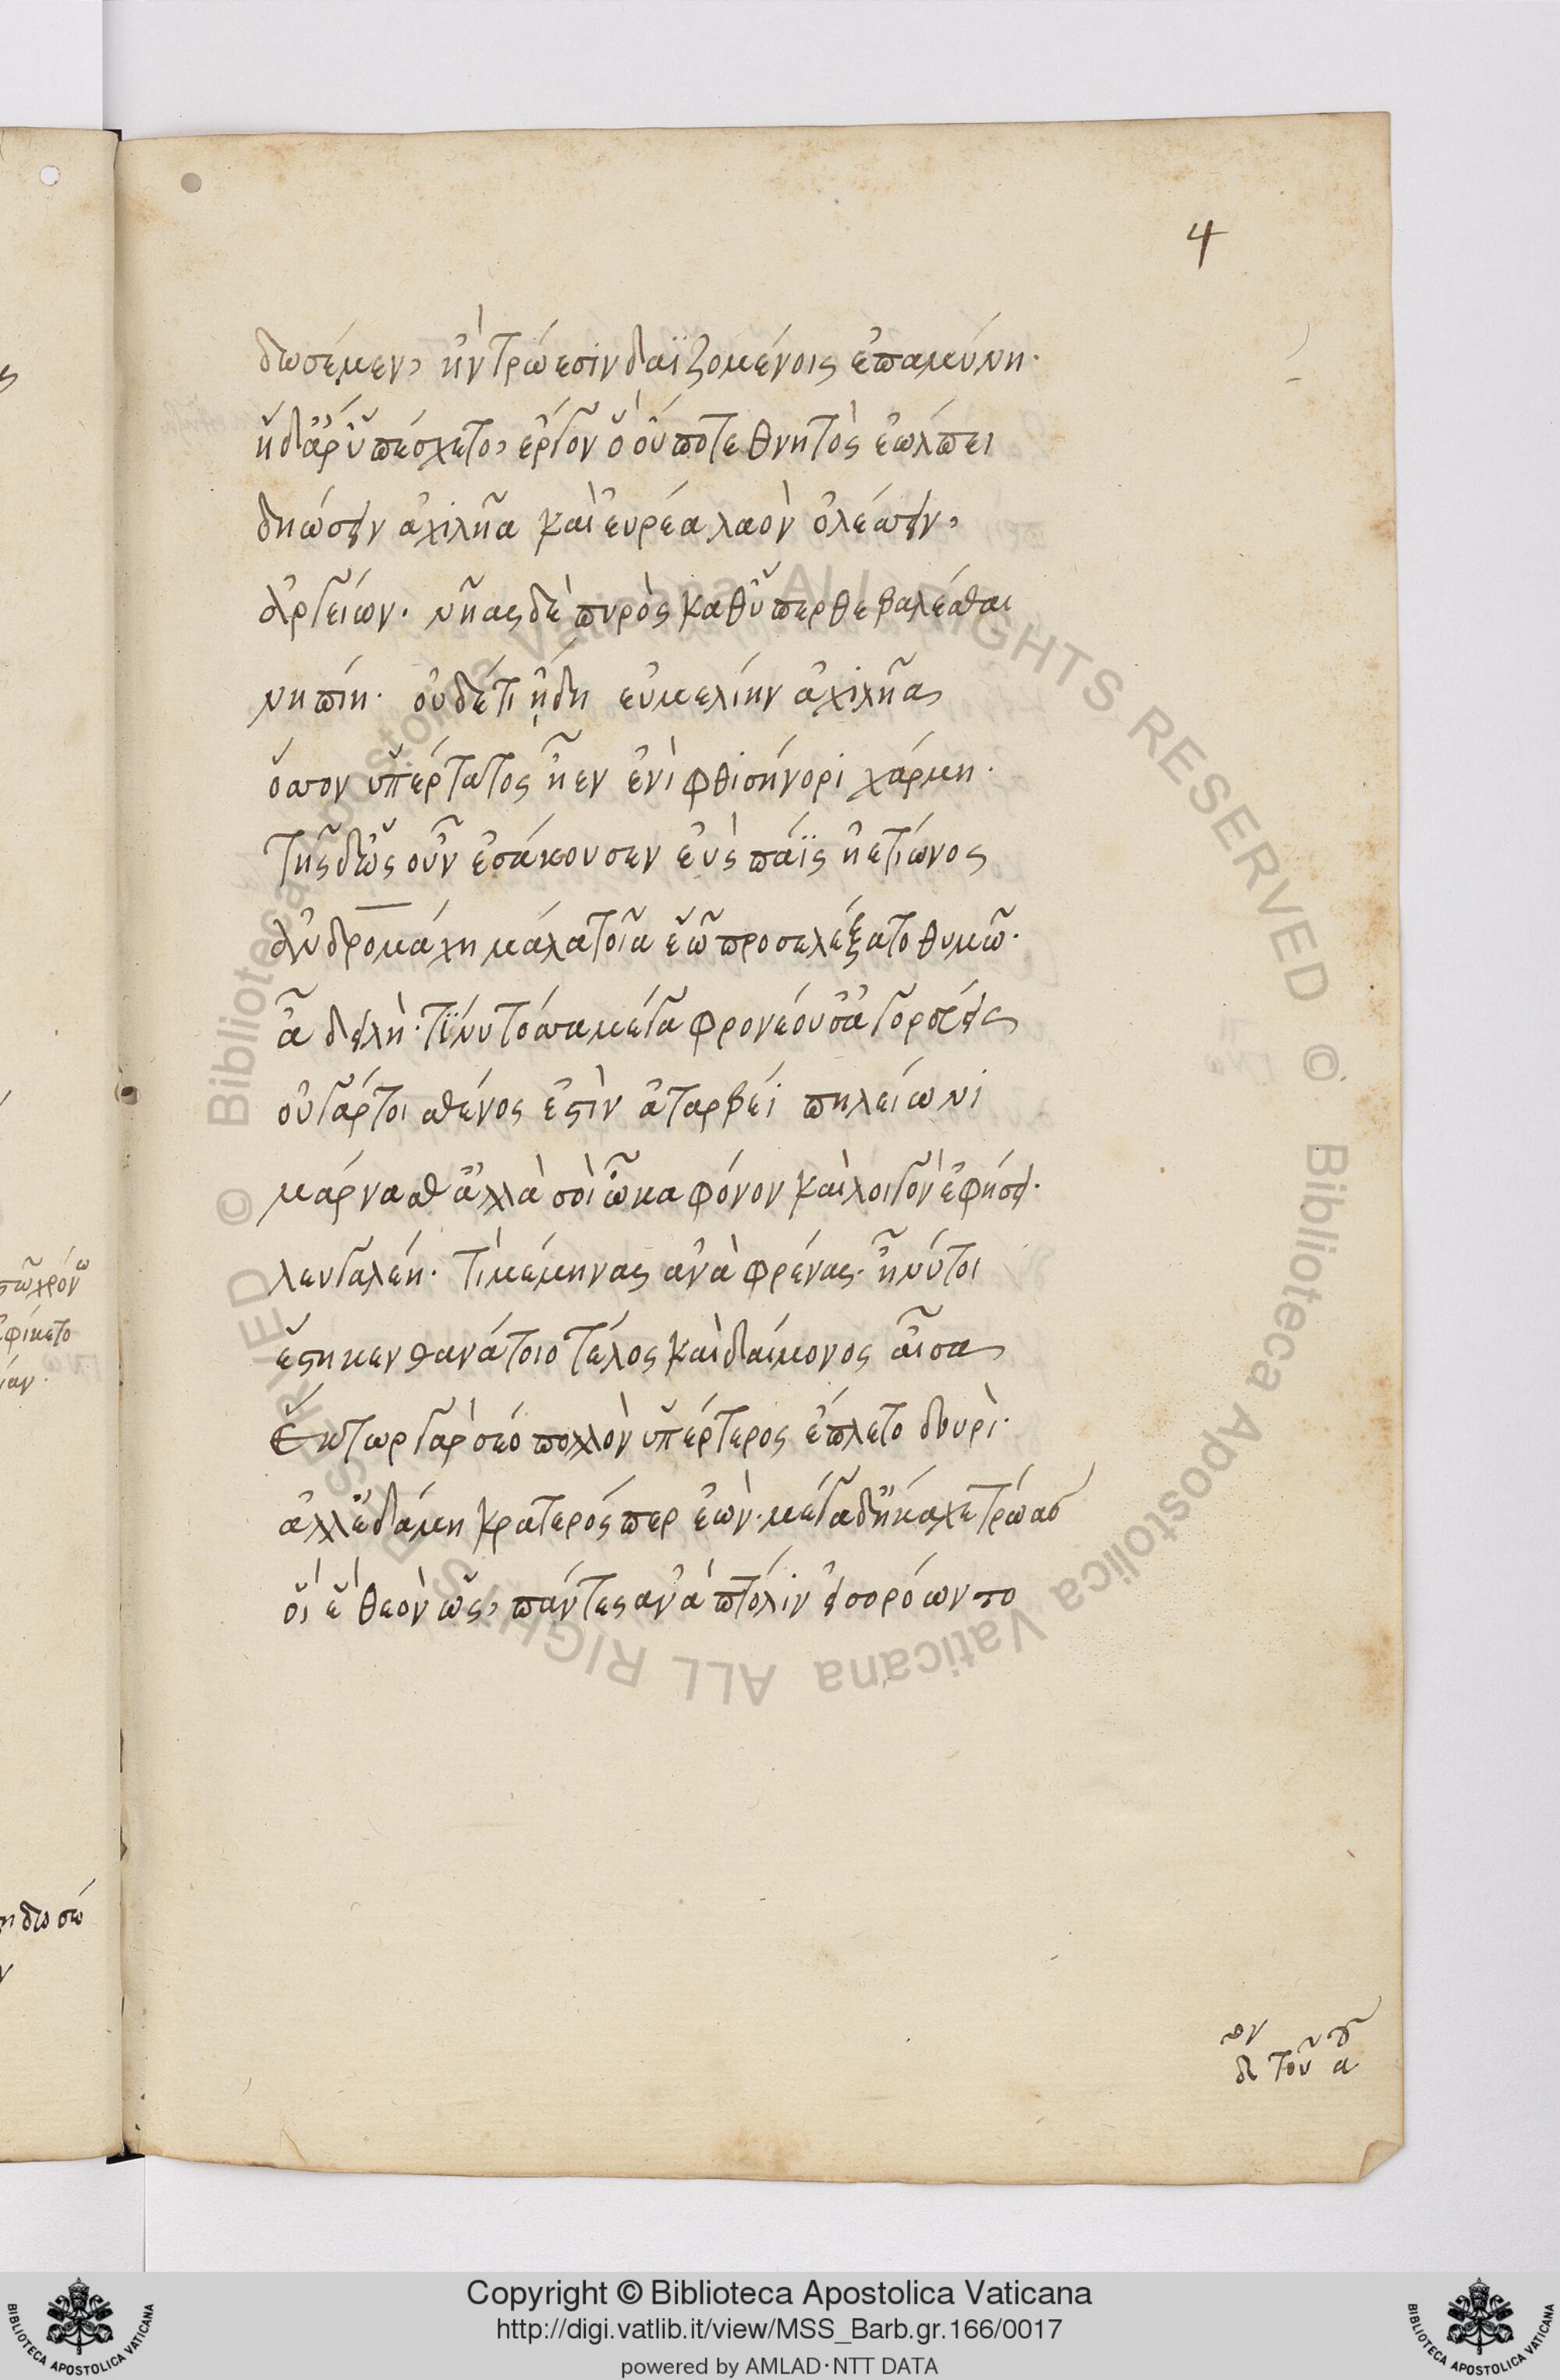 4
δωσέμεν, ἢν τρώεσιν δαϊζομένοις ἐπαμύνη.
ἣ δ' ἄρ' ὑπέσχετο, ἔργον ὃ οὔποτε θνητὸς ἐώλπει
δηώσειν ἀχιλῆα καὶ εὐρέα λαὸν ὀλέσσειν,
ἀργείων. νῆας δὲ πυρὸς καθύπερθε βαλέσθαι
νηπίη. οὐδέ τι ἤδη εὐμελίην ἀχιλῆα
ὅσσον ὑπέρτατος ἦεν ἐνὶ φθισήνορι χάρμη.
τῆς δ' ὡς οὖν ἐσάκουσεν ἐὺς πάϊς ἠετίωνος
ἀνδρομάχη μάλα τοῖα ἑῷ προσελέξατο θυμῶ.
ἆ δειλὴ. τί νυ τόσσα μέγα φρονέουσ' ἀγορεύεις
οὐ γάρ τοι σθένος ἐστὶν ἀταρβέϊ πηλείωνι
μάρνασθ' ἀλλὰ σοὶ ὦκα φόνον καὶ λοιγὸν ἐφήσει.
λευγαλέη. τί μέμηνας ἀνὰ φρένας. ἦ νύ τοι
ἔστηκεν θανάτοιο τέλος καὶ δαίμονος αἶσα
Ἕκτωρ γὰρ σέο πολλὸν ὑπέρτερος ἔπλετο δουρὶ.
ἀλλ' ἐδάμη κρατερός περ ἐὼν. μέγα δ' ἤκαχε τρῶας
οἵ ἑ θεὸν ὣς, πάντες ἀνὰ πτόλιν εἰσορόωντο
Copyright © Biblioteca Apostolica Vaticana
http://digi.vatlib.it/view/MSS_Barb.gr.166/0017
powered by AMLAD·NTT DATA